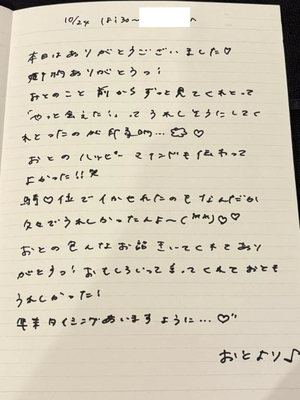 10/24 18:30〜
本日はありがとうございました♡
贈り物ありがとうっ！
おとのこと前からずっと見てくれとって
「やっと会えた！」ってうれしそうにしてく
れとったのが印象的…♡
おとのハッピーマインドも伝わって
よかった！！笑
騎♡位でイかせれたのもなんだか
久々でうれしかったんよ〜(笑)♡♡
おとの色んなお話きいてくれてあり
がとうっ！おもしろいって言ってくれておとも
うれしかった！
タイミングあいますように…♡
おとより♪